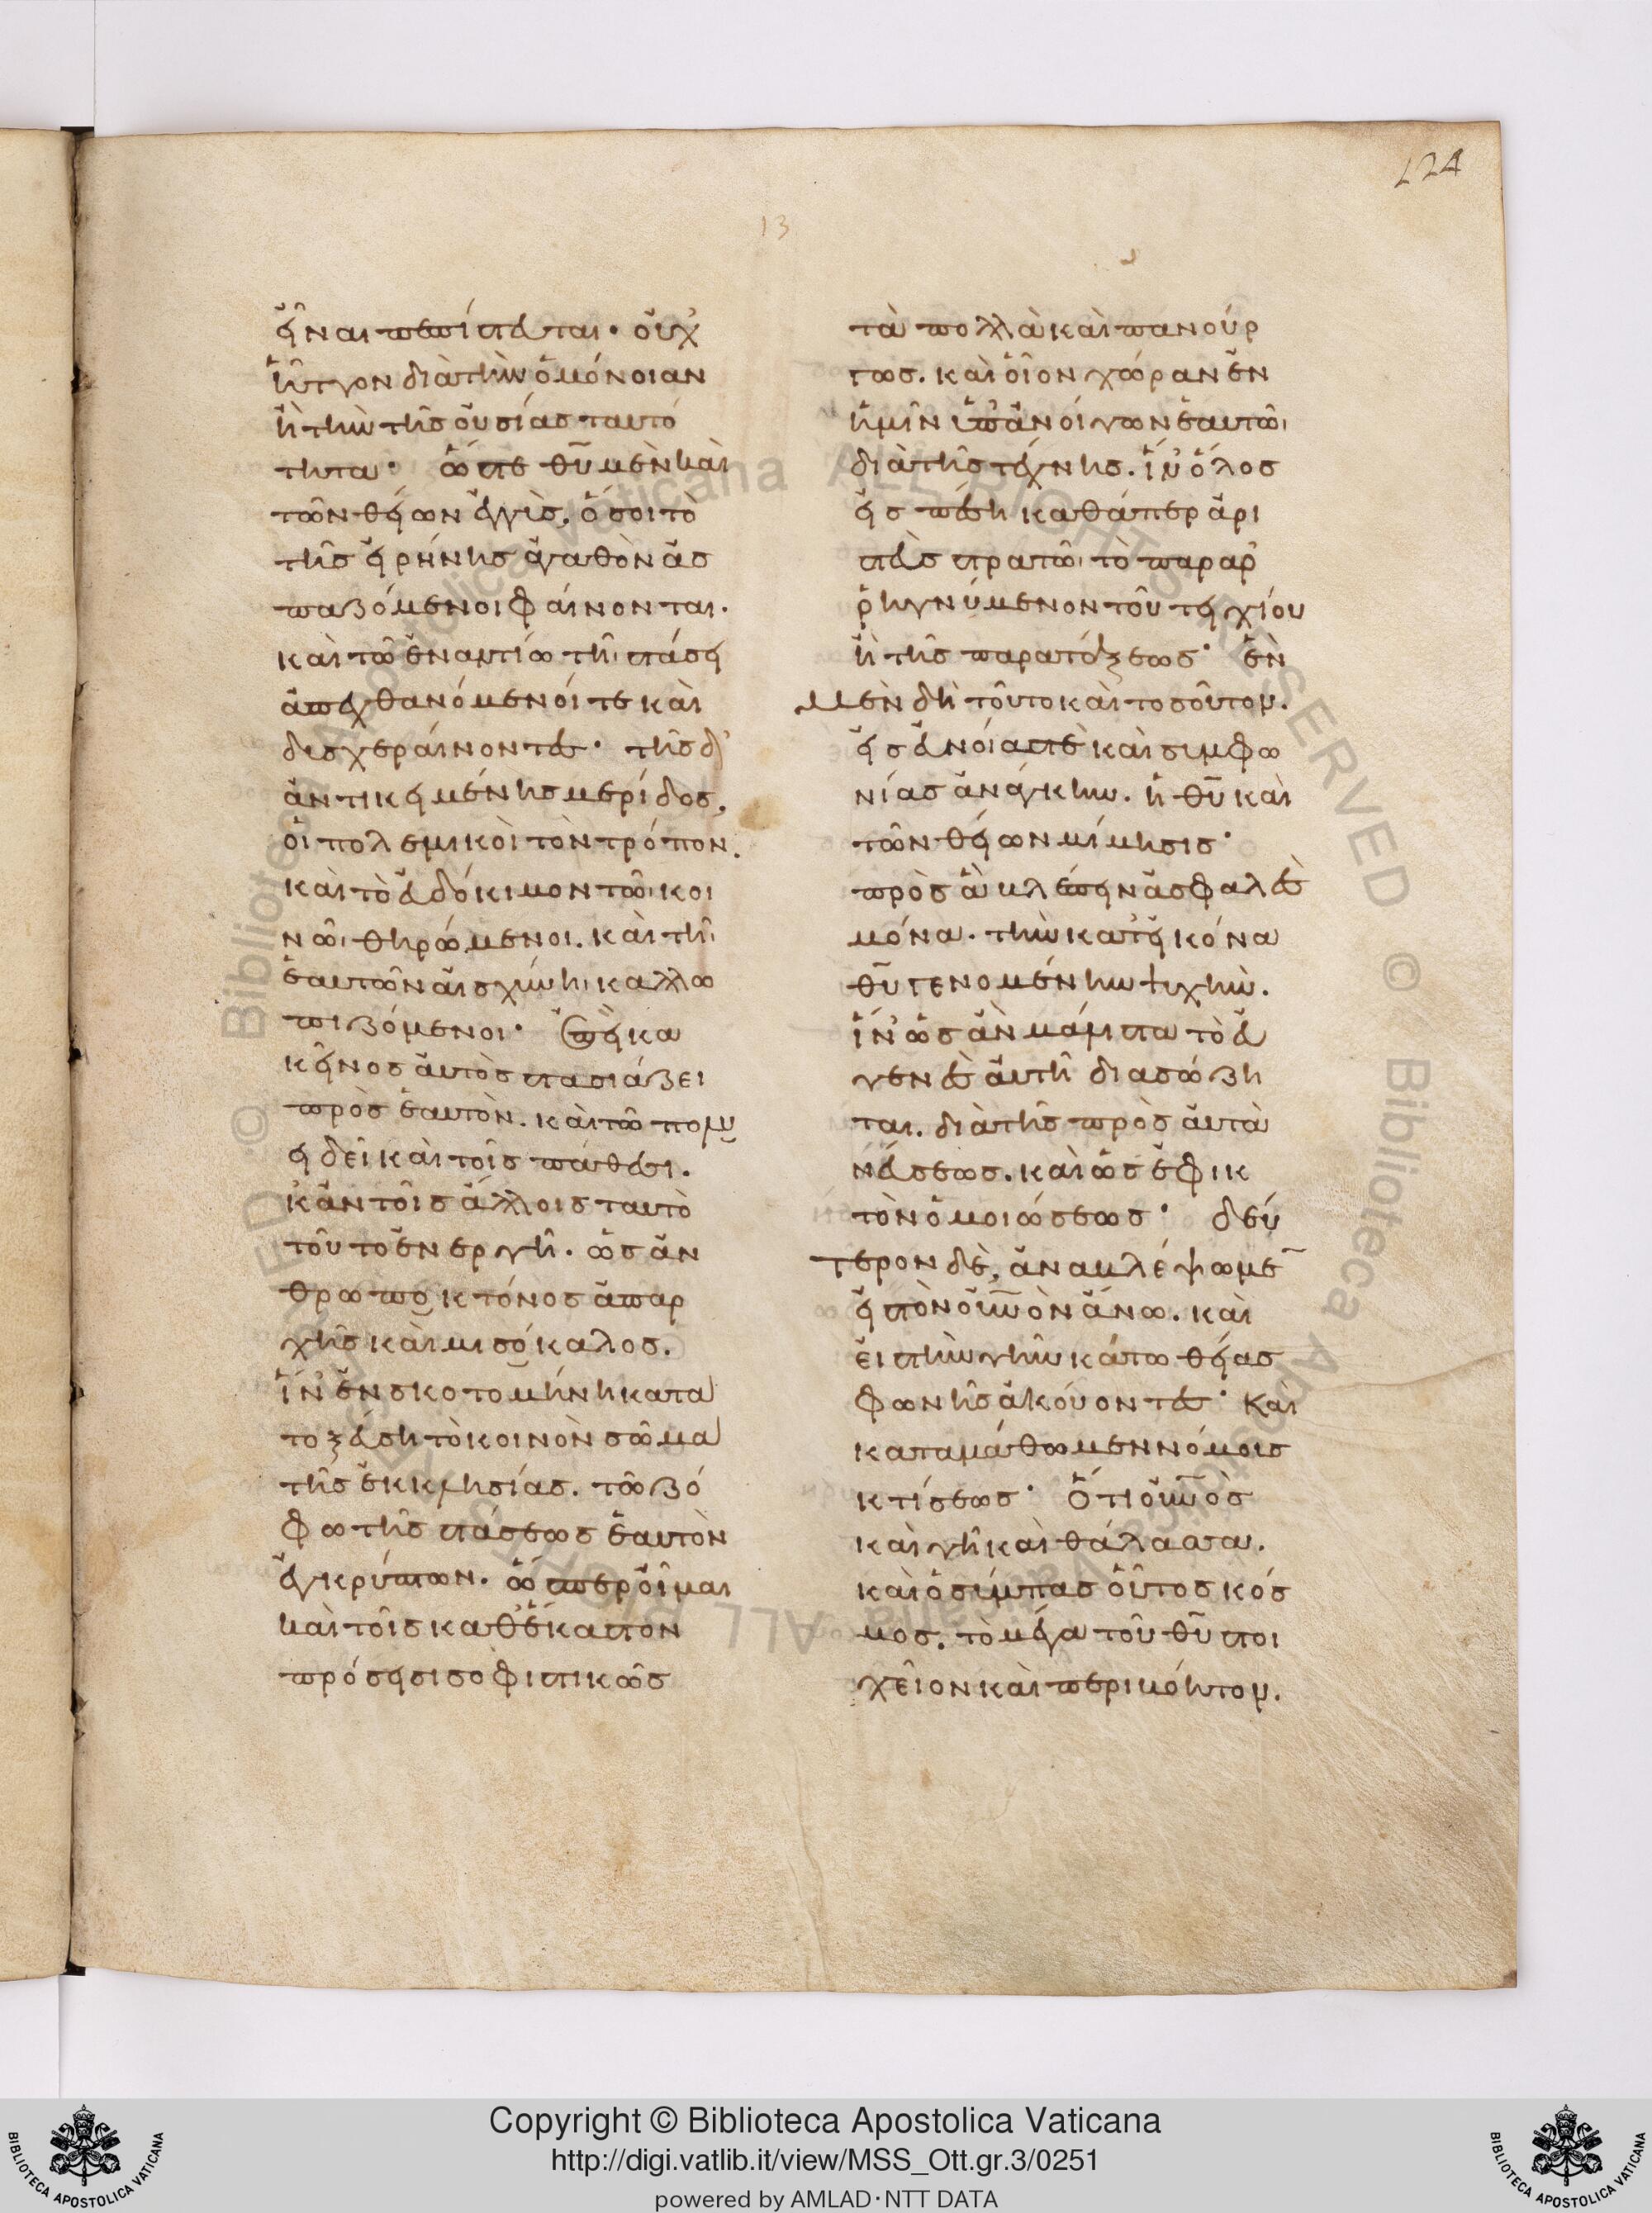 124
13
εἶναι πεπίστευται· οὐχ
ἧττον διὰ τὴν ὁμόνοιαν
ἢ τὴν τῆς οὐσίας ταυτό
τητα· ὥστε θυ μὲν καὶ
τῶν θείων ἐγγὺς, ὅσοι τὸ
τῆς εἰρήνης ἀγαθὸν ἀσ
παζόμενοι φαίνονται.
καὶ τῶ ἐναντίω τῆι στάσει
ἀπεχθανόμενοί τε καὶ
δυσχεραίνοντες· τῆς δ'
ἀντικειμένης μερίδος,
οἱ πολεμικοὶ τὸν τρόπον.
καὶ τὸ εὐδόκιμον τῶι και
νῶι θηρώμενοι. καὶ τῆι
ἑαυτῶν αἰσχύνηι καλλω
πιζόμενοι· ἐπεὶ κα
κεῖνος αὐτὸς στασιάζει
πρὸς ἑαυτὸν. καὶ τῶ πολυ
ειδεῖ καὶ τοῖς πάθεσι.
κἂν τοῖς ἄλλοις ταυτὸ
τοῦτο ἐνεργῆ. ὡς ἀν
θρωποκτόνος ἀπαρ
χῆς καὶ μισόκαλος.
ἵν' ἐν σκοτομήνη κατα
τοξεύση τὸ κοινὸν σῶμα
τῆς ἐκκλησίας. τῶ ζό
φω τῆς στάσεως ἑαυτὸν
ἐγκρύπτων. ὥσπερ οἶμαι
καὶ τοῖς καθ' ἕκαστον
πρόσεισι σοφιστικῶς
τὰ πολλὰ καὶ πανούρ
γως. καὶ οἷον χώραν ἐν
ἡμῖν ὑπανοίγων ἑαυτῶι
διὰ τῆς τέχνης. ἵν' ὅλος
εἰσπέση καθάπερ ἀρι
στεὺς στρατῶι τὸ παραρ
ρηγνύμενον τοῦ τειχίου
ἢ τῆς παρατάξεως· ἓν
μὲν δὴ τοῦτο καὶ τοσοῦτον.
εἰς εὐνοίας τὲ καὶ συμφω
νίας ἀνάγκην. ἡ θυ καὶ
τῶν θείων μίμησις·
πρὸς ἃ βλέπειν ἀσφαλὲς
μόνα. τὴν κατ' εἰκόνα
θυ γενομένην ψυχὴν.
ἵν' ὡς ἂν μάλιστα τὸ εὐ
γενὲς αὐτῆ διασώζη
ται. διὰ τῆς πρὸς αὐτὰ
νεύσεως. καὶ ὡς ἐφικ
τὸν ὁμοιώσεως· δεύ
τερον δὲ, ἀναβλέψωμε
εἰς τὸν οὐνὸν ἄνω. καὶ
εἰς τὴν γῆν κάτω θείας
φωνῆς ἀκούοντες· Καὶ
καταμάθωμεν νόμους
κτίσεως· Ὅτι οὐνὸς
καὶ γῆ καὶ θάλασσα.
καὶ ὁ σύμπας οὗτος κόσ
μος. τὸ μέγα τοῦ θυ στοι
χεῖον καὶ περιβόητον.
Copyright © Biblioteca Apostolica Vaticana
http://digi.vatlib.it/view/MSS_Ott.gr.3/0251
powered by AMLAD·NTT DATA
BIBLIOTECA APOSTOLICA VATICANA
BIBLIOTECA APOSTOLICA VATICANA